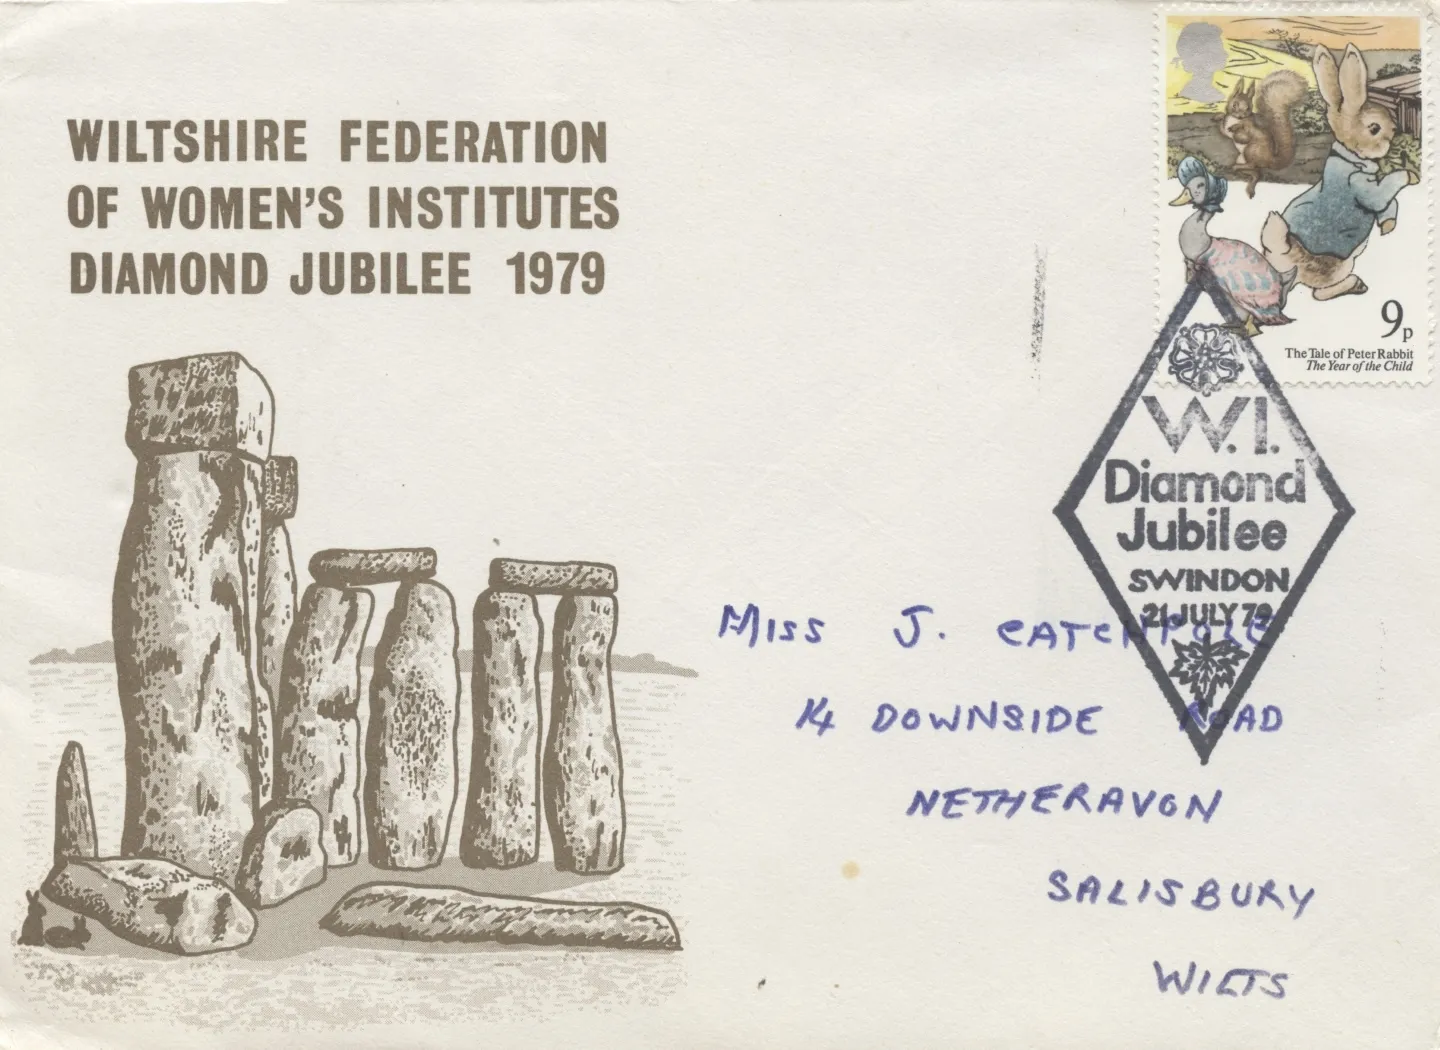 WILTSHIRE FEDERATION
OF WOMEN'S INSTITUTES
DIAMOND JUBILEE 1979
9p
The Tale of Peter Rabbit
The Year of the Child
W.I.
Diamond
Jubilee
SWINDON
21 JULY 79
MISS J. CATCHPOLE
14 DOWNSIDE ROAD
NETHERAVON
SALISBURY
WILTS